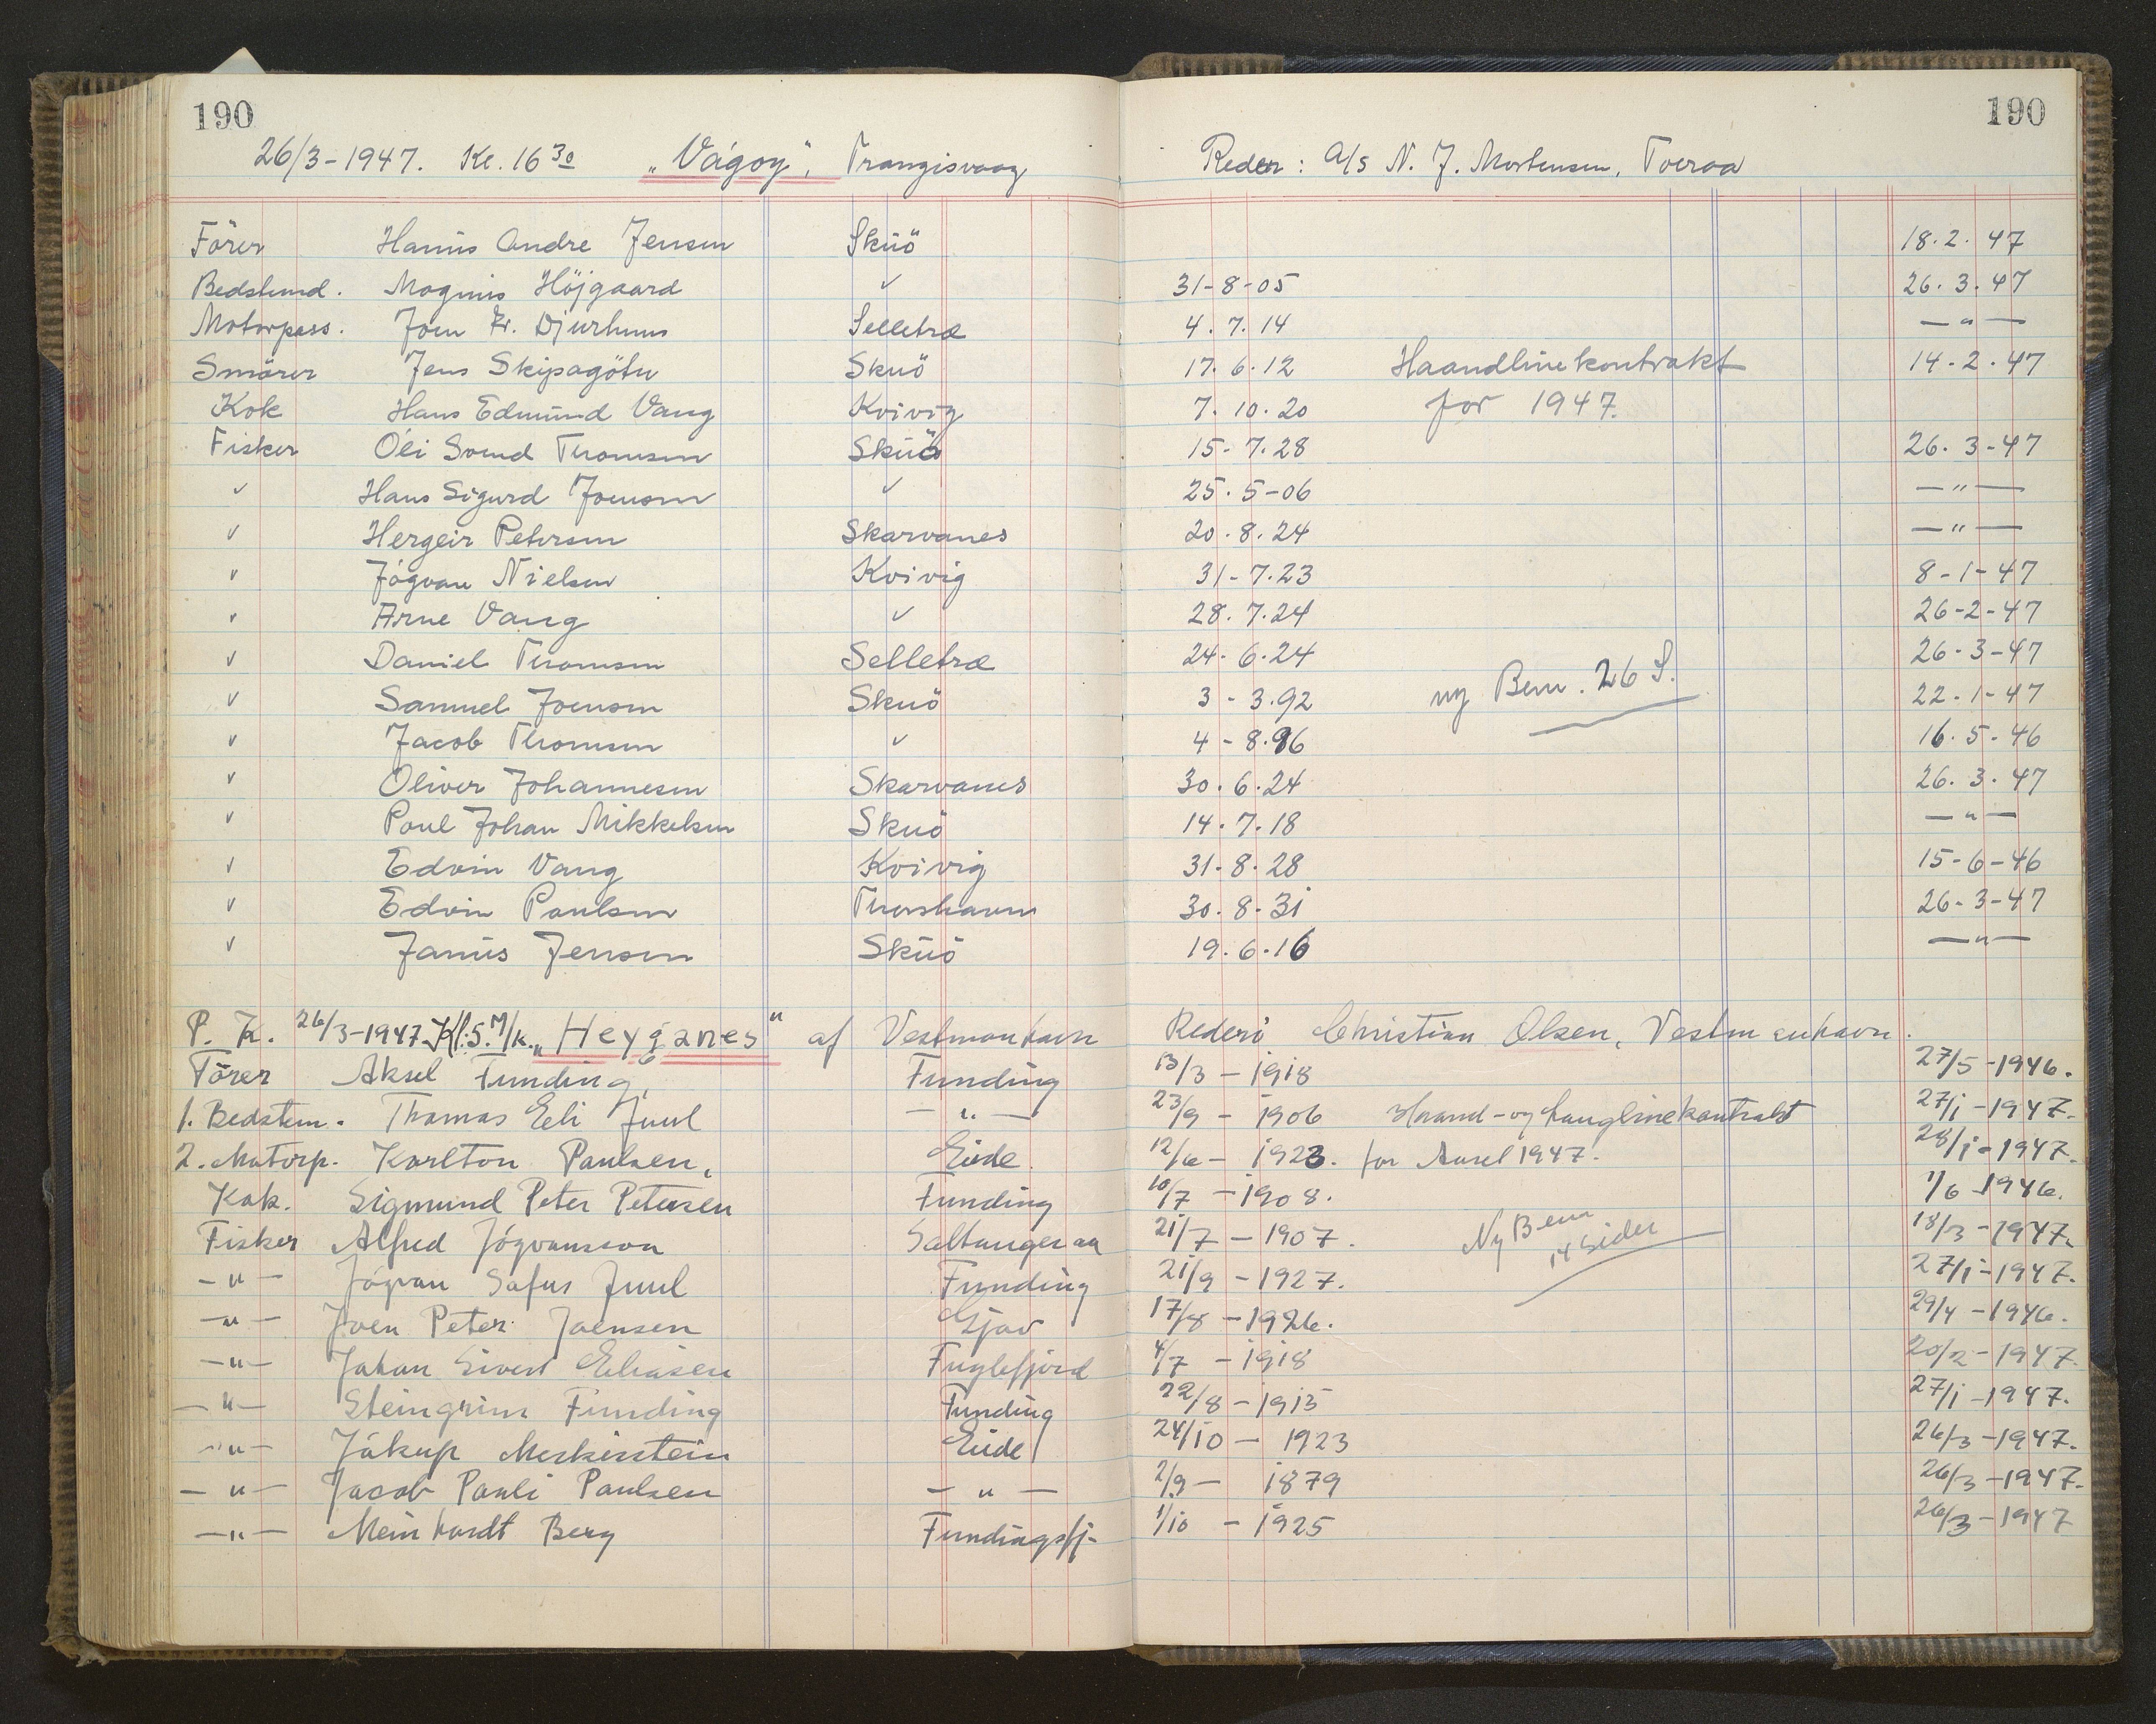 190 190
26/3-1947. Kl. 16 30 „Vágoy“, Trangisvaag Reder: A/S N. J. Mortensen, Tveraa
Förer Hanus Andre Jensen Skuö 18.2.47
Bedstemd. Magnus Höjgaard ✓ 31-8-05 26.3.47
Motorpass. Joen Fr. Djurhuus Selletræ 4.7.14 — " —
Smörer Jens Skipagötu Skuö 17.6.12 Haandlinekontrakt 14-2-47
Kok Hans Edmund Vang Kvivig 7.10.20 for 1947.
Fisker Óli Svend Thomsen Skuö 15-7.28 26.3-47
✓ Hans Sigurd Joensen ✓ 25.5-06 — " —
✓ Hergeir Petersen Skarvanes 20.8.24 — " —
✓ Jógvan Nielsen Kvivig 31-7.23 8-1-47
✓ Arne Vang ✓ 28.7.24 26-2-47
✓ Daniel Thomsen Selletræ 24.6.24 26-3-47
✓ Samuel Joensen Skuö 3-3.92 ny Bem. 26 S. 22-1-47
✓ Jacob Thomsen ✓ 4-8.96 16.5-46
✓ Oliver Johannesen Skarvanes 30.6.24 26.3.47
✓ Poul Johan Mikkelsen Skuö 14.7.18 — " —
✓ Edvin Vang Kvivig 31.8.28 15-6-46
✓ Edvin Poulsen Thorshavn 30.8-31 26-3-47
✓ Janus Jensen Skuö 19.6.16 — " —
P. K. 26/3-1947 Kl. 5. M/k. „Heyganes“ af Vestmanhavn Rederi Christian Olsen, Vestmanhavn.
Förer Aksel Funding, Funding 13/3 - 1918 27/5-1946.
1. Bedstem. Thomas Eli Juul — " — 23/9 - 1906 Haand- og Langlinekontrakt 27/1-1947.
2. Motorp. Karlton Paulsen, Eide 12/6 - 1923. for Aaset 1947. 28/1-1947.
Kok. Sigmund Peter Petersen Funding 10/7 - 1908. 1/6-1946.
Fisker Alfred Jógvansson Saltangeraa 21/7 - 1907. Ny Bem 14 sider 18/3-1947.
- " - Jógvan Sofus Juul Funding 21/9 - 1927. 27/1-1947.
- " - Joen Peter Joensen Gjov 17/8 - 1926. 29/4-1946.
- " - Johan Sivert Eliasen Fuglefjord 4/7 - 1918 20/2-1947.
- " - Steingrim Funding Funding 22/8 - 1915 27/1-1947.
- " - Jákup Merkistein Eide 24/10 - 1923 26/3-1947.
- " - Jacob Pauli Paulsen - " - 2/9 - 1879 26/3-1947.
- " - Meinhardt Berg Fundingsfj- 1/10 - 1925 26/3-1947